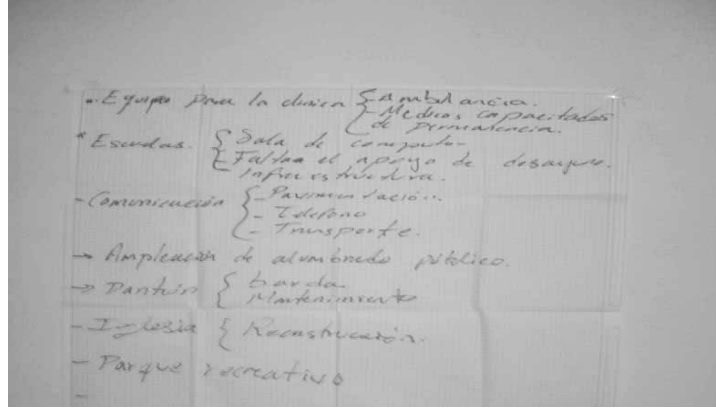 - Equipo para la clinica { Ambulancia.
- Medicos capacitados
de permanencia.
* Escuelas. { Sala de computo
Faltaa el apoyo de desayuno.
Infraestructura.
- Comunicación { - Pavimentación.
- Telefono
- Transporte.
→ Ampleación de alumbrado público.
→ Panteón { barda
Mantenimiento
- Iglesia { Reconstrucción.
- Parque recreativo
-